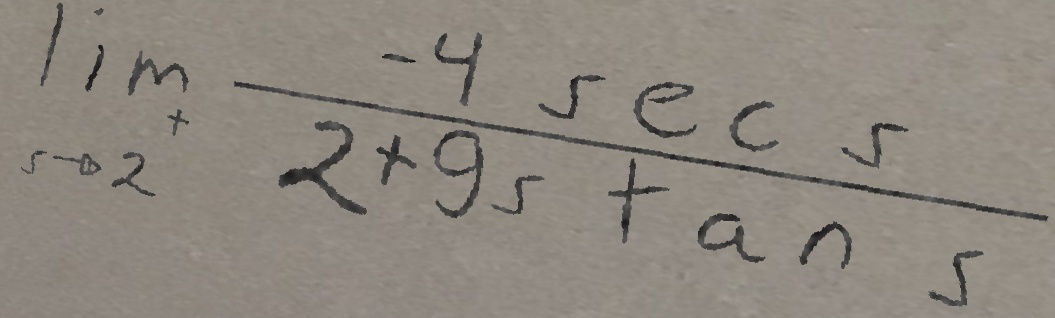 lim s→2⁺ (-4 sec s)/(2+9s tan s)